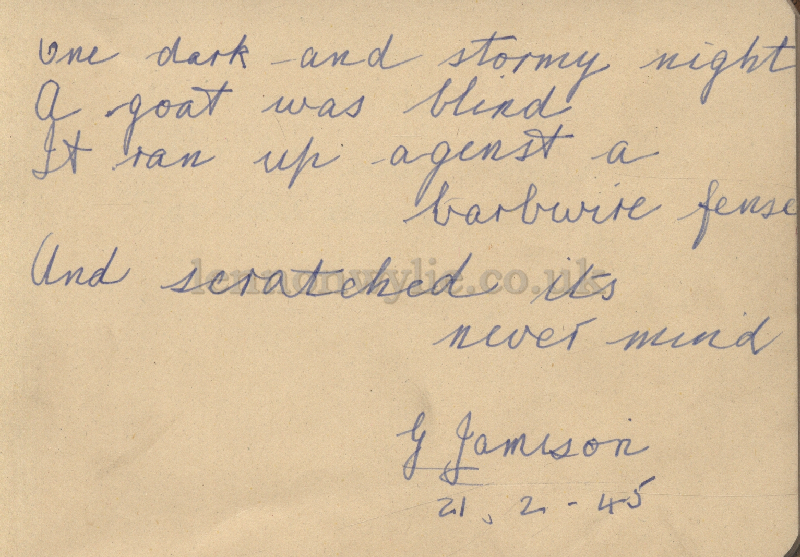 One dark and stormy night
A goat was blind
It ran up agenst a
barbwire fense
And scratched its
lennonwylie.co.uk
never mind
G Jamison
21. 2 - 45